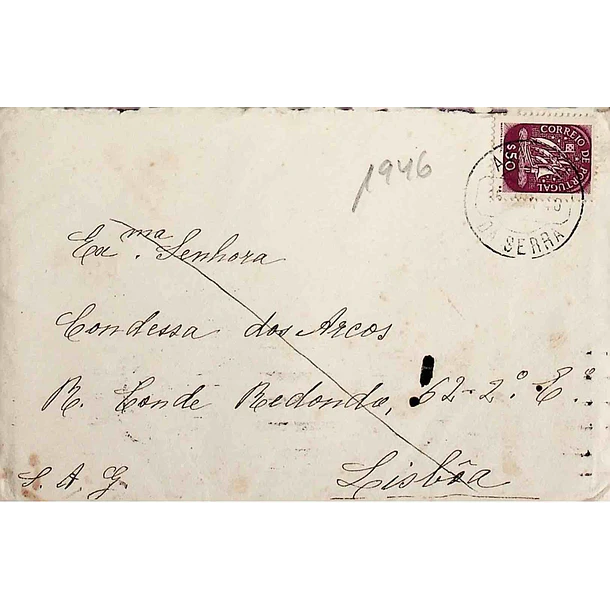 CORREIO DE PORTUGAL
$50
DA SERRA
1946
Exma. Senhora
Condessa dos Arcos
R. Conde Redondo, 62-2º. E.º
S. A. G.
Lisbôa